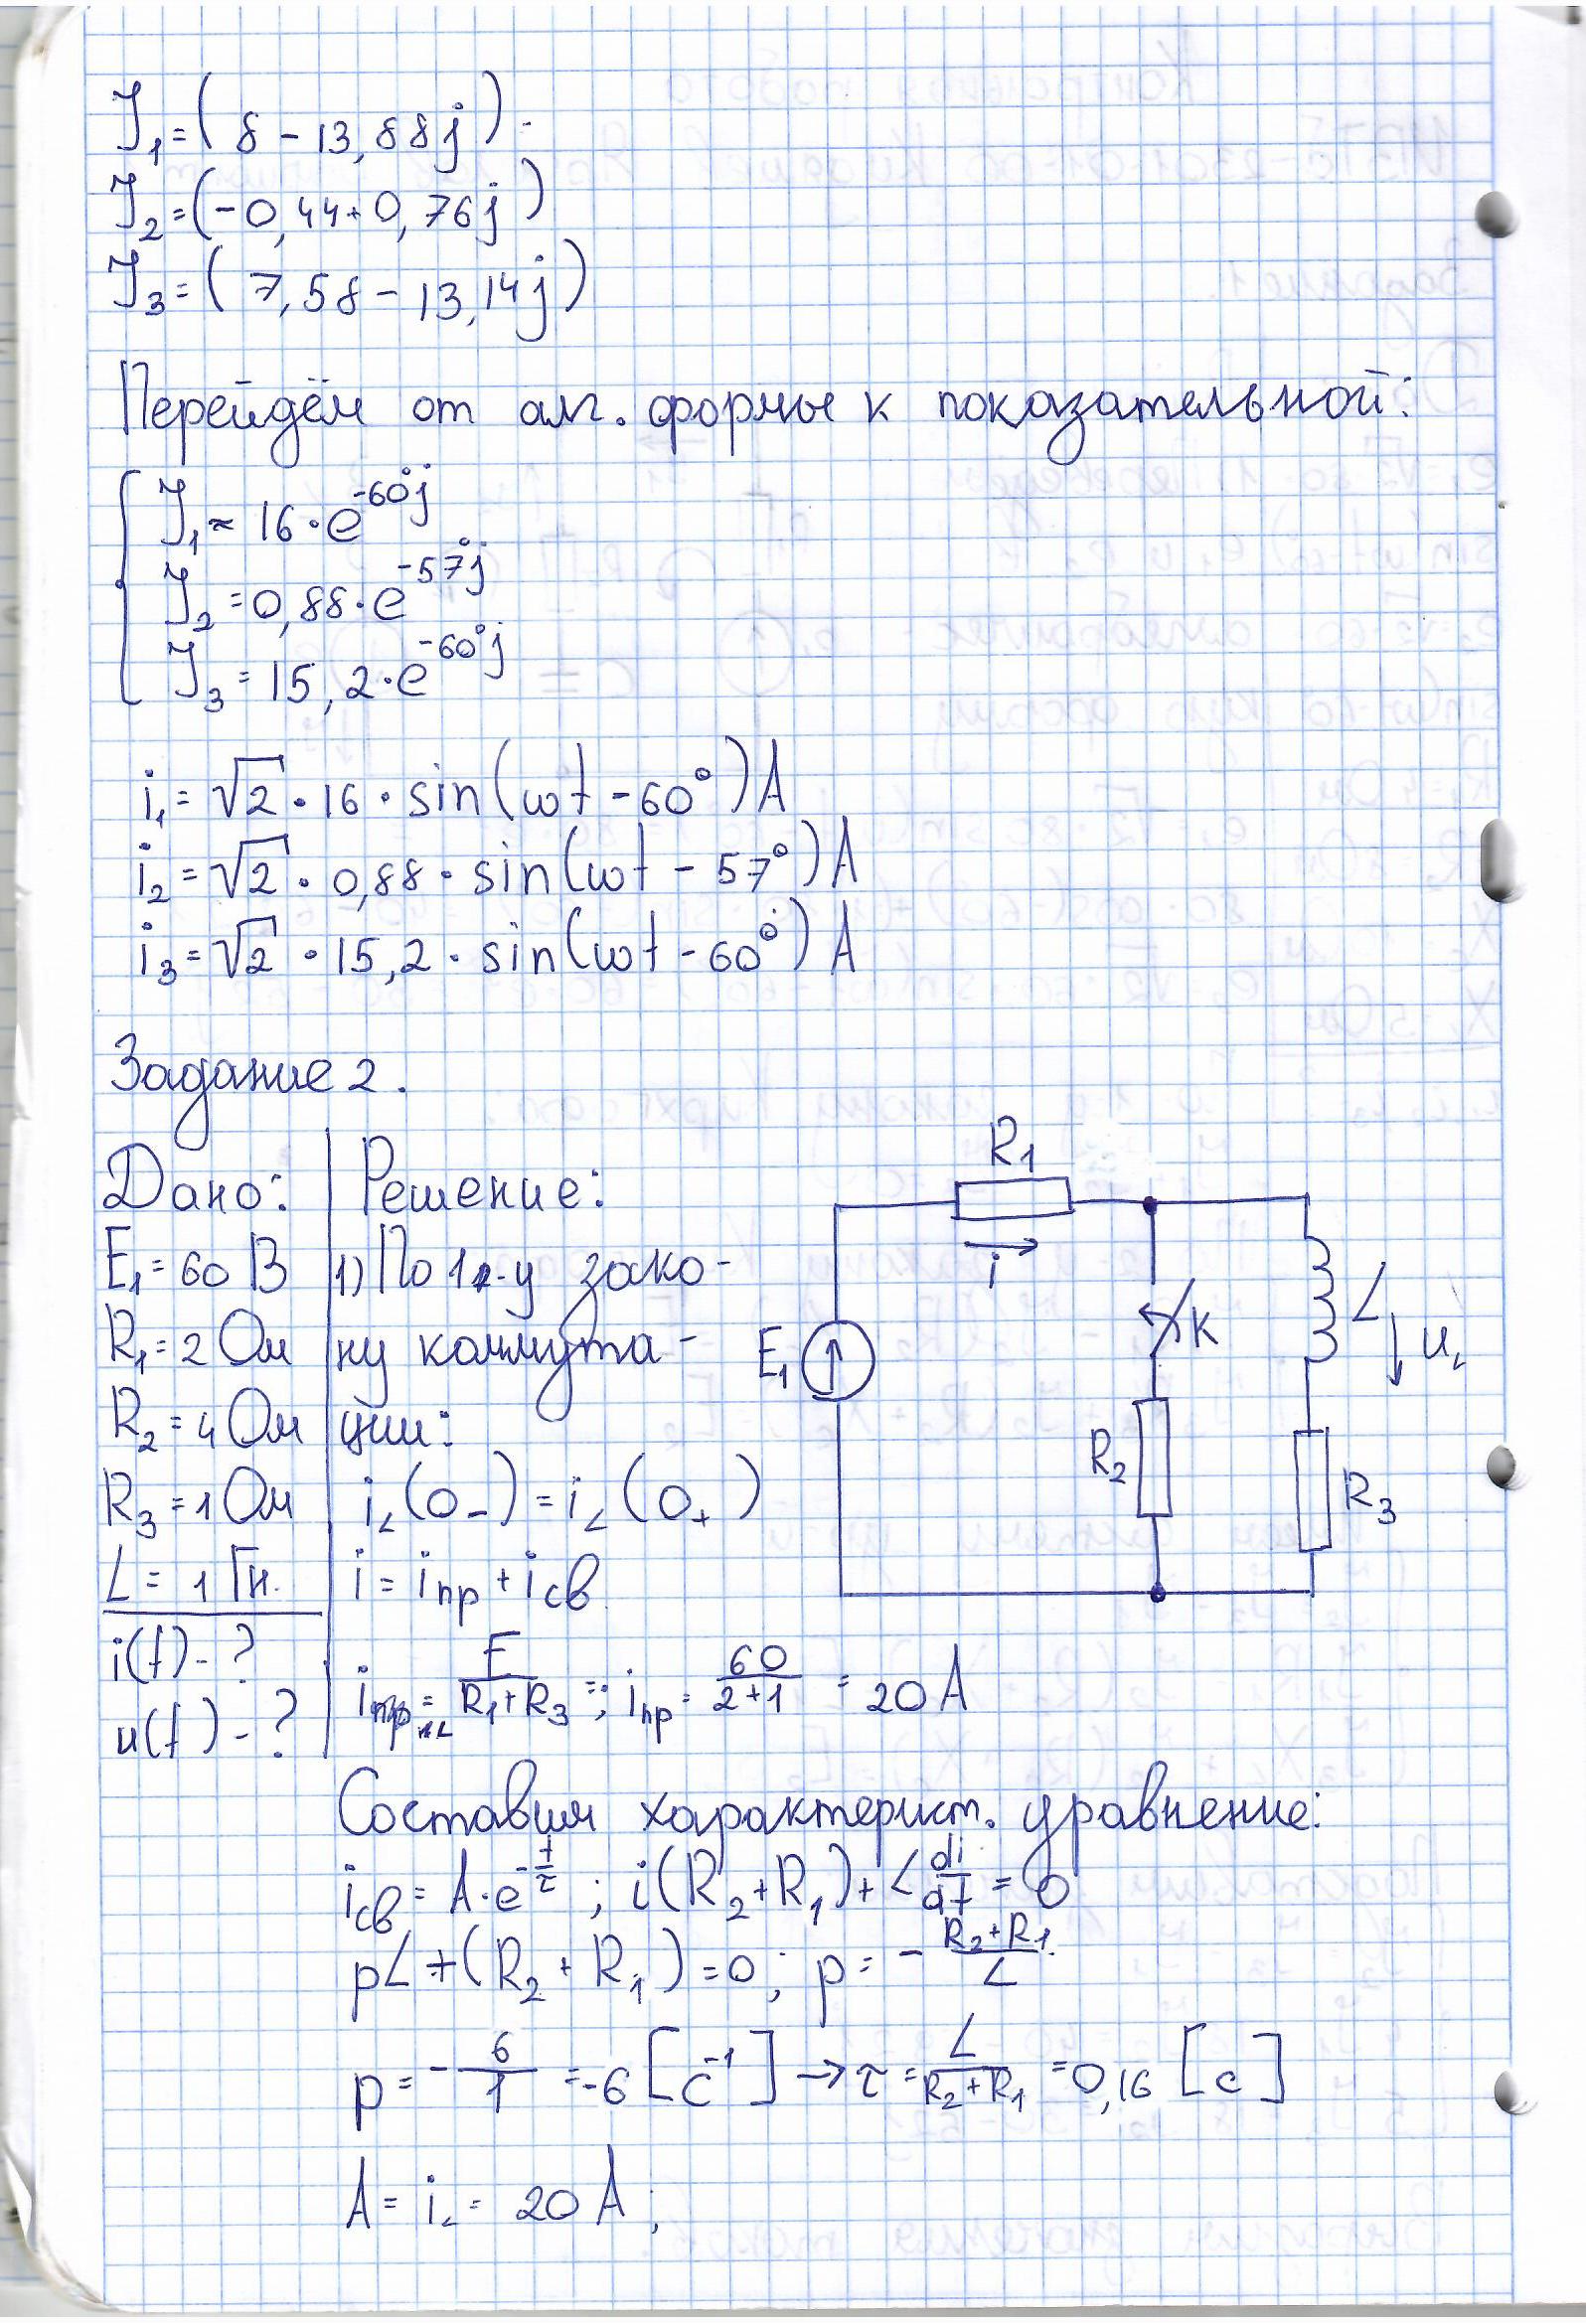 J₁ = (8 - 13,88j).
J₂ = (-0,44 + 0,76j)
J₃ = (7,58 - 13,14j)
Перейдём от алг. формы к показательной:
J₁ ≈ 16·e^(-60°j)
J₂ = 0,88·e^(-57°j)
J₃ = 15,2·e^(-60°j)
i₁ = √2 · 16 · sin(ωt - 60°) A
i₂ = √2 · 0,88 · sin(ωt - 57°) A
i₃ = √2 · 15,2 · sin(ωt - 60°) A
Задание 2.
Дано:
E₁ = 60 В
R₁ = 2 Ом
R₂ = 4 Ом
R₃ = 1 Ом
L = 1 Гн.
i(t) - ?
u(t) - ?
Решение:
1) По 1-у зако-
ну коммута-
ции:
i_L(0₋) = i_L(0₊)
i = i_пр + i_св
R₁
i
E₁
K
R₂
L
u_L
R₃
i_пр = E/(R₁+R₃) =; i_пр = 60/(2+1) = 20 A
Составим характерист. уравнение:
i_св = A·e^(-t/τ); i(R₂+R₁) + L di/dt = 0
pL + (R₂ + R₁) = 0; p = - (R₂+R₁)/L
p = - 6/1 = -6 [c⁻¹] → τ = L/(R₂+R₁) = 0,16 [c]
A = i_L = 20 A;